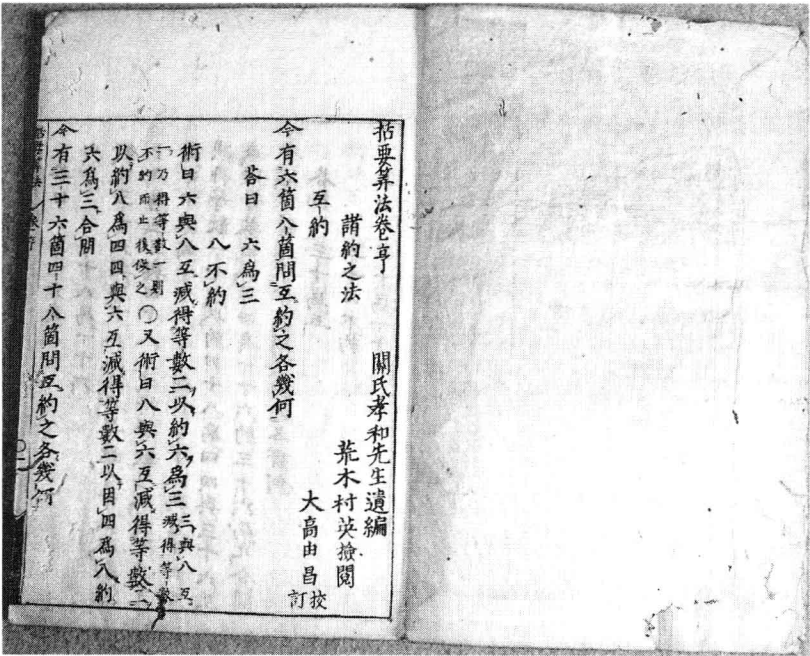 括要算法卷亨
關氏孝和先生遺編
荒木村英撿閲
大高由昌挍訂
諸約之法
互約
今有六箇八箇問互約之各幾何
荅曰六爲三
八不約
術曰六與八互减得等數二以約六爲三三與八互减得等數一乃得等數一則不約而止後倣之○又術曰八與六互减得等數二
以約八爲四四與六互减得等數二以因四爲八約
六爲三合問
今有三十六箇四十八箇問互約之各幾何